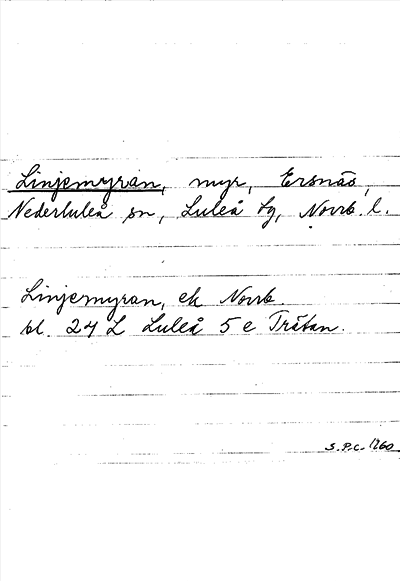 Linjemyran, myr, Ersnäs,
Nederluleå sn, Luleå tg, Norrb. l.
Linjemyran, ek Norrb.
bl. 24 L Luleå 5 e Tråtan.
S.P.C. 1260